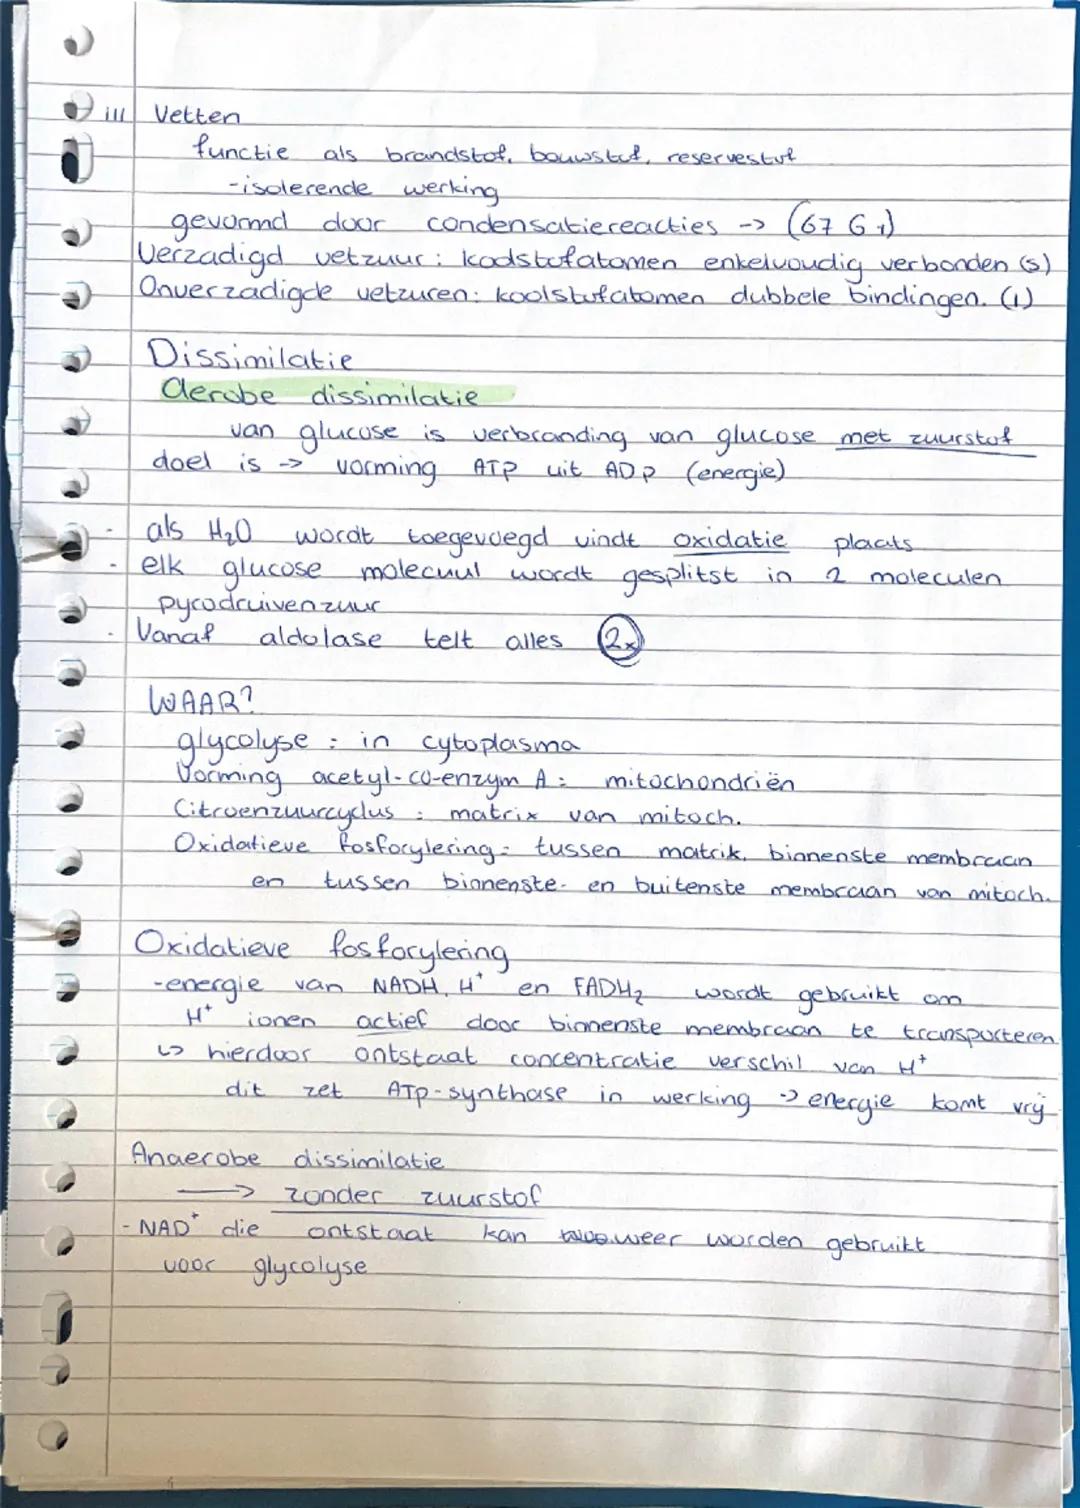 iii Vetten
functie als brandstof, bouwstof, reservestof
-isolerende werking
gevormd door condensatiereacties -> (67 G1)
Verzadigd vetzuur: koolstofatomen enkelvoudig verbonden (s)
Onverzadigde vetzuren: koolstofatomen dubbele bindingen. (l)
Dissimilatie
Aerobe dissimilatie
van glucose is verbranding van glucose met zuurstof
doel is -> vorming ATP uit ADP (energie)
- als H₂O wordt toegevoegd vindt oxidatie plaats
- elk glucose molecuul wordt gesplitst in 2 moleculen
pyrodruivenzuur
- Vanaf aldolase telt alles 2x
WAAR?
glycolyse : in cytoplasma
Vorming acetyl-co-enzym A: mitochondriën
Citroenzuurcyclus : matrix van mitoch.
Oxidatieve fosforylering: tussen matrix, binnenste membraan
en tussen binnenste- en buitenste membraan van mitoch.
Oxidatieve fosforylering
-energie van NADH, H⁺ en FADH₂ wordt gebruikt om
H⁺ ionen actief door binnenste membraan te transporteren
↳ hierdoor ontstaat concentratie verschil van H⁺
dit zet ATP-synthase in werking -> energie komt vrij
Anaerobe dissimilatie
-> zonder zuurstof
- NAD⁺ die ontstaat kan weer worden gebruikt
voor glycolyse